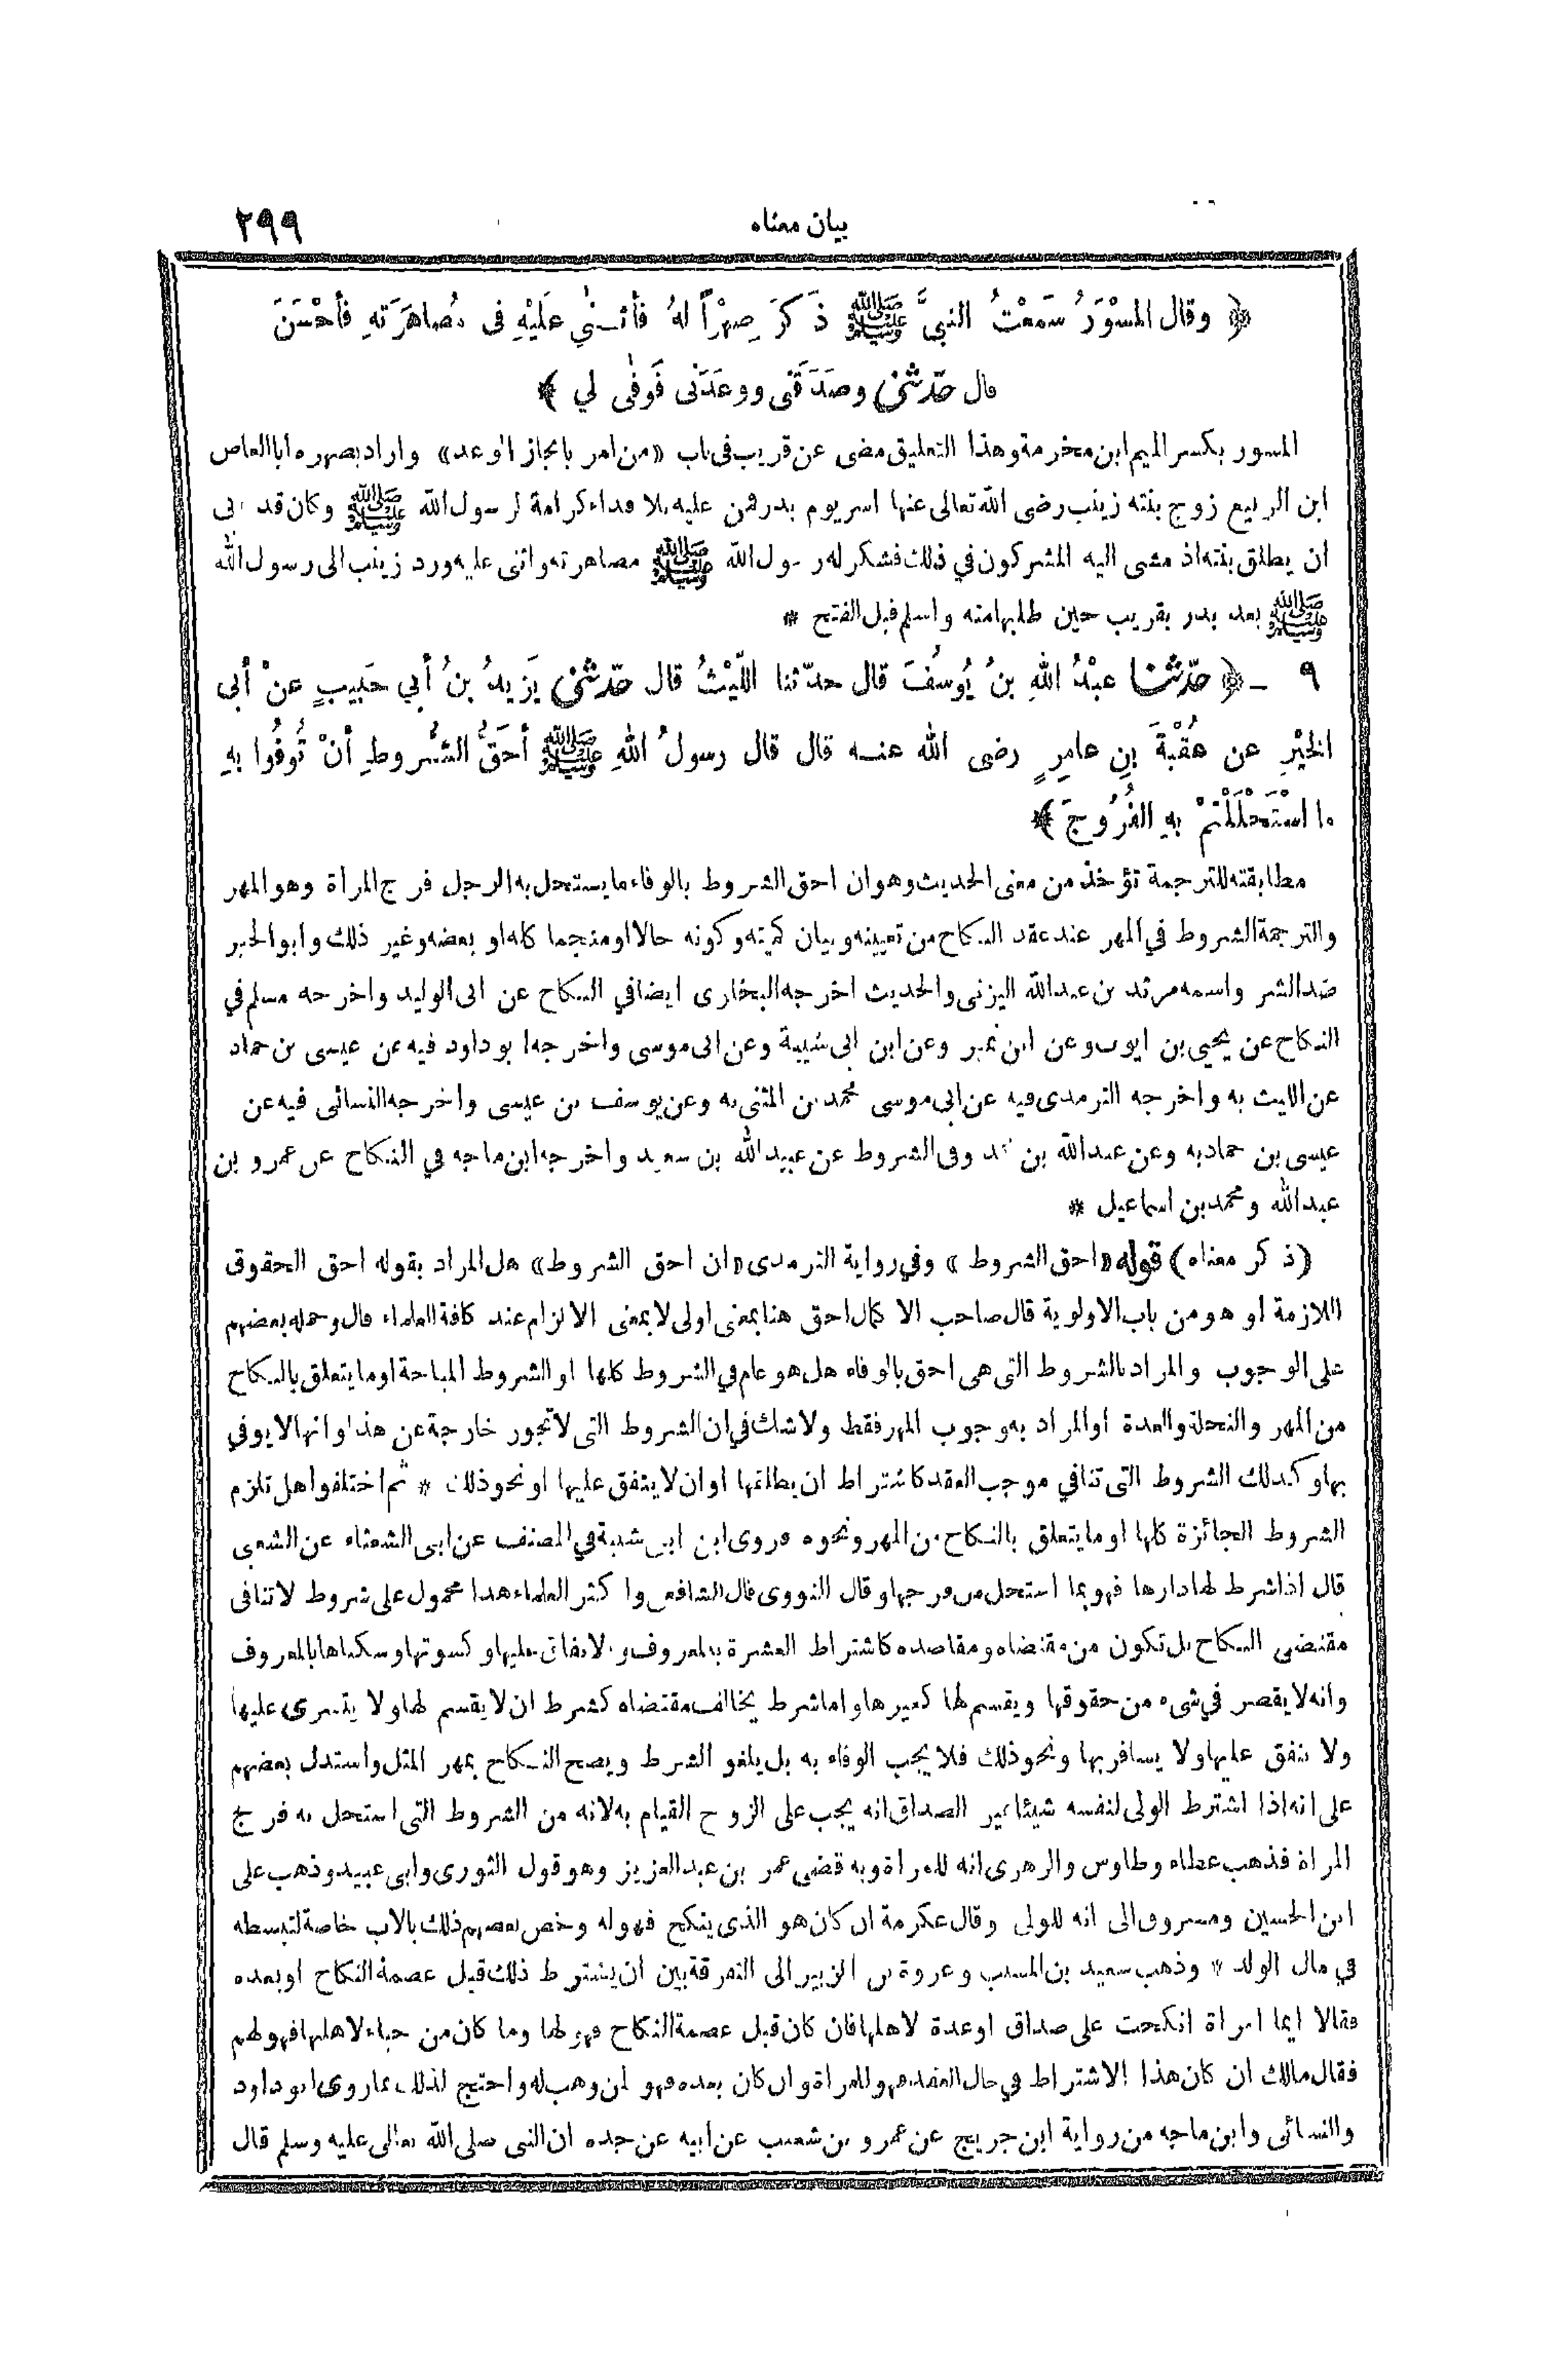 بيان معناه ٢٩٩
﴿ وقال المِسْوَرُ سَمِعْتُ النبيَّ ﷺ ذَكَرَ صِهْرًا لهُ فأثْنٰي عَلَيْهِ فى مُصاهَرَتهِ فأحْسَنَ
قال حدّثنى وصَدَقَنى ووعَدَنى فَوفٰى لي ﴾
المسور بكسر الميم ابن مخرمة وهذا التعليق مضى عن قريب فى باب «من امر بانجاز الوعد» واراد بصهره ابا العاص
ابن الربيع زوج بنته زينب رضى الله تعالى عنها اسر يوم بدر فمن عليه بلا فداء كرامة لرسول الله ﷺ وكان قد ابى
ان يطلق بنته اذ مشى اليه المشركون في ذلك فشكر له رسول الله ﷺ مصاهرته واثنى عليه ورد زينب الى رسول الله
ﷺ بعد بدر بقريب حين طلبها منه واسلم قبل الفتح *
٩ - ﴿ حدّثنا عبْدُ اللهِ بنُ يُوسُفَ قال حدّثنا اللّيْثُ قال حدّثنى يَزِيدُ بنُ أبي حَبيبٍ عنْ أبى
الخيْرِ عن عُقْبَةَ بنِ عامِرٍ رضى الله عنه قال قال رسولُ اللهِ ﷺ أحَقُّ الشُّروطِ أنْ تُوفُوا بهِ
ما اسْتَحْلَلْتمْ بهِ الفُرُوجَ ﴾
مطابقته للترجمة تؤخذ من معنى الحديث وهو ان احق الشروط بالوفاء ما يستحل به الرجل فرج المراة وهو المهر
والترجمة الشروط في المهر عند عقد النكاح من تعيينه وبيان كميته وكونه حالا او منجما كله او بعضه وغير ذلك وابو الخير
ضد الشر واسمه مرثد بن عبد الله اليزنى والحديث اخرجه البخارى ايضا في النكاح عن ابى الوليد واخرجه مسلم في
النكاح عن يحيى بن ايوب وعن ابن نمير وعن ابن ابى شيبة وعن ابى موسى واخرجه ابو داود فيه عن عيسى بن حماد
عن الليث به واخرجه الترمذى فيه عن ابي موسى محمد بن المثنى به وعن يوسف بن عيسى واخرجه النسائى فيه عن
عيسى بن حماد به وعن عبد الله بن وفى الشروط عن عبيد الله بن سعيد واخرجه ابن ماجه في النكاح عن عمرو بن
عبد الله ومحمد بن اسماعيل *
(ذكر معناه) قوله «احق الشروط» وفي رواية الترمذى «ان احق الشروط» هل المراد بقوله احق الحقوق
اللازمة او هو من باب الاولوية قال صاحب الاكمال احق هنا بمعنى اولى لا بمعنى الالزام عند كافة العلماء قال وحمله بعضهم
على الوجوب والمراد بالشروط التى هى احق بالوفاء هل هو عام في الشروط كلها او الشروط المباحة او ما يتعلق بالنكاح
من المهر والنحلة والعدة او المراد به وجوب المهر فقط ولا شك في ان الشروط التى لا تجوز خارجة عن هذا وانها لا يوفي
بها وكذلك الشروط التى تنافي موجب العقد كاشتراط ان يطلقها او ان لا ينفق عليها او نحو ذلك * ثم اختلفوا هل تلزم
الشروط الجائزة كلها او ما يتعلق بالنكاح من المهر ونحوه فروى ابن ابى شيبة في المصنف عن ابى الشعثاء عن الشعبى
قال اذا شرط لها دارها فهو بما استحل من فرجها وقال النووى قال الشافعى واكثر العلماء هذا محمول على شروط لا تنافى
مقتضى النكاح بل تكون من مقتضاه ومقاصده كاشتراط العشرة بالمعروف والانفاق عليها وكسوتها وسكناها بالمعروف
وانه لا يقصر في شىء من حقوقها ويقسم لها كغيرها واما شرط يخالف مقتضاه كشرط ان لا يقسم لها ولا يتسرى عليها
ولا ينفق عليها ولا يسافر بها ونحو ذلك فلا يجب الوفاء به بل يلغو الشرط ويصح النكاح بمهر المثل واستدل بعضهم
على انه اذا اشترط الولى لنفسه شيئا غير الصداق انه يجب على الزوج القيام به لانه من الشروط التى استحل به فرج
المراة فذهب عطاء وطاوس والزهرى انه للمراة وبه قضى عمر بن عبد العزيز وهو قول الثورى وابى عبيد وذهب على
ابن الحسين ومسروق الى انه للولى وقال عكرمة ان كان هو الذى ينكح فهو له وخص بعضهم ذلك بالاب خاصة لتبسطه
في مال الولد * وذهب سعيد بن المسيب وعروة بن الزبير الى التفرقة بين ان يشترط ذلك قبل عصمة النكاح او بعده
فقالا ايما امراة انكحت على صداق او عدة لاهلها فان كان قبل عصمة النكاح فهو لها وما كان من حباء لاهلها فهو لهم
فقال مالك ان كان هذا الاشتراط في حال العقد فهو للمراة وان كان بعده فهو لمن وهب له واحتج لذلك بما روى ابو داود
والنسائى وابن ماجه من رواية ابن جريج عن عمرو بن شعيب عن ابيه عن جده ان النبى صلى الله تعالى عليه وسلم قال